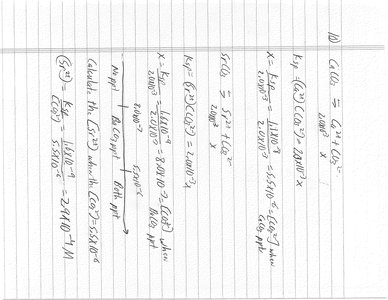 10) CaCO₃ ⇌ Ca²⁺ + CO₃²⁻
2.0x10⁻³ x
Ksp = (Ca²⁺)(CO₃²⁻) = 2.0x10⁻³ x
x = Ksp / 2.0x10⁻³ = 1.1x10⁻⁸ / 2.0x10⁻³ = 5.5x10⁻⁶ = (CO₃²⁻) when CaCO₃ ppts
SrCO₃ ⇌ Sr²⁺ + CO₃²⁻
2.0x10⁻³ x
Ksp = (Sr²⁺)(CO₃²⁻) = 2.0x10⁻³ x
x = Ksp / 2.0x10⁻³ = 1.6x10⁻⁹ / 2.0x10⁻³ = 8.0x10⁻⁷ = (CO₃²⁻) when
ppt
8.0x10⁻⁷ 5.5x10⁻⁶
No ppt BaCO₃ ppt Both ppt
Calculate the (Sr²⁺) when the (CO₃²⁻) = 5.5x10⁻⁶
(Sr²⁺) = Ksp / (CO₃²⁻) = 1.6x10⁻⁹ / 5.5x10⁻⁶ = 2.9x10⁻⁴ M